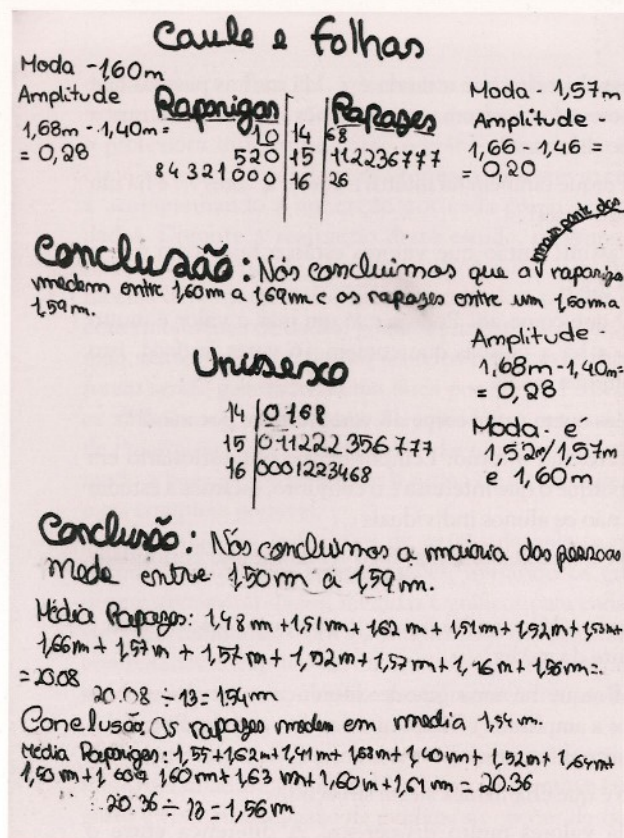 Caule e folhas
Moda - 1,60m
Amplitude
1,68m - 1,40m =
= 0,28
Raparigas | | Rapazes
10 | 14 | 68
520 | 15 | 112236777
84321000 | 16 | 26
Moda - 1,57m
Amplitude -
1,66 - 1,46 =
= 0,20
maior parte das
Conclusão: Nós concluimos que a raparigas
medem entre 1,60m a 1,69m e os rapazes entre um 1,50m a
1,59m.
Unissexo
14 | 0168
15 | 011222356777
16 | 0001223468
Amplitude -
1,68m - 1,40m=
= 0,28
Moda - e
1,52m/1,57m
e 1,60m
Conclusão: Nós concluimos a maioria das pessoas
mede entre 1,50m a 1,59m.
Média Rapazes: 1,48m + 1,51m + 1,62m + 1,51m + 1,52m + 1,53m+
1,66m + 1,57m + 1,57m + 1,52m + 1,57m + 1,46m + 1,56m=
= 20.08
20.08 ÷ 13 = 1,54m
Conclusão: Os rapazes medem em media 1,54m.
Média Raparigas: 1,55+1,62m+1,41m+1,68m+1,40m+1,52m+1,64m+
1,50m+1,60+1,60m+1,63m+1,60m+1,61m = 20.36
20.36 ÷ 13 = 1,56m